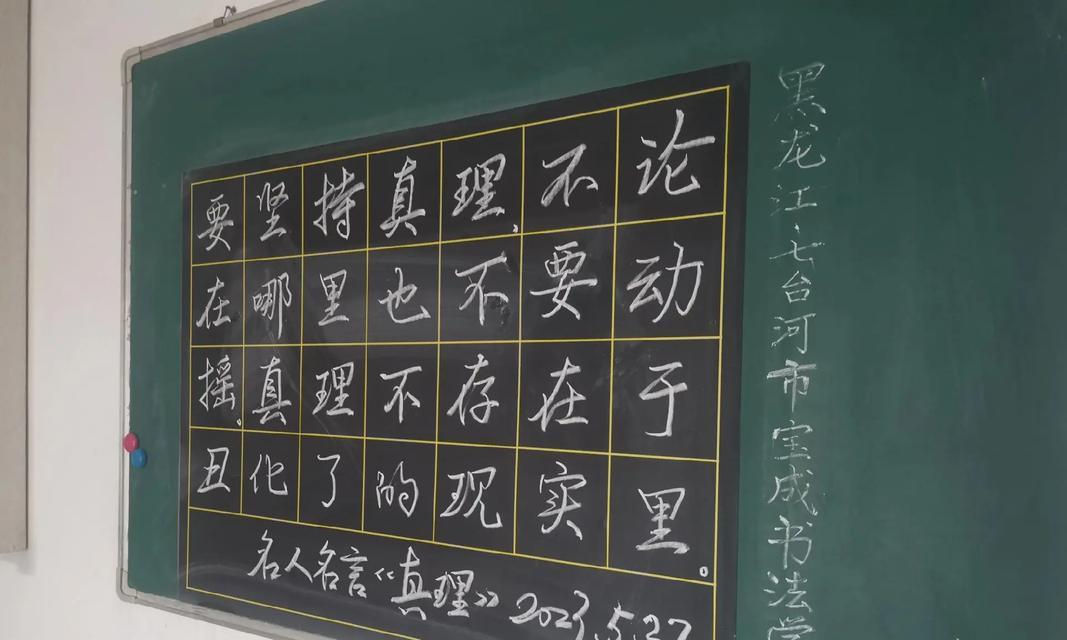 要坚持真理,不论
在哪里也不要动
摇,真理不存在于
丑化了的现实里。
名人名言《真理》 2023.5.27
黑龙江·七台河市宝成书法学